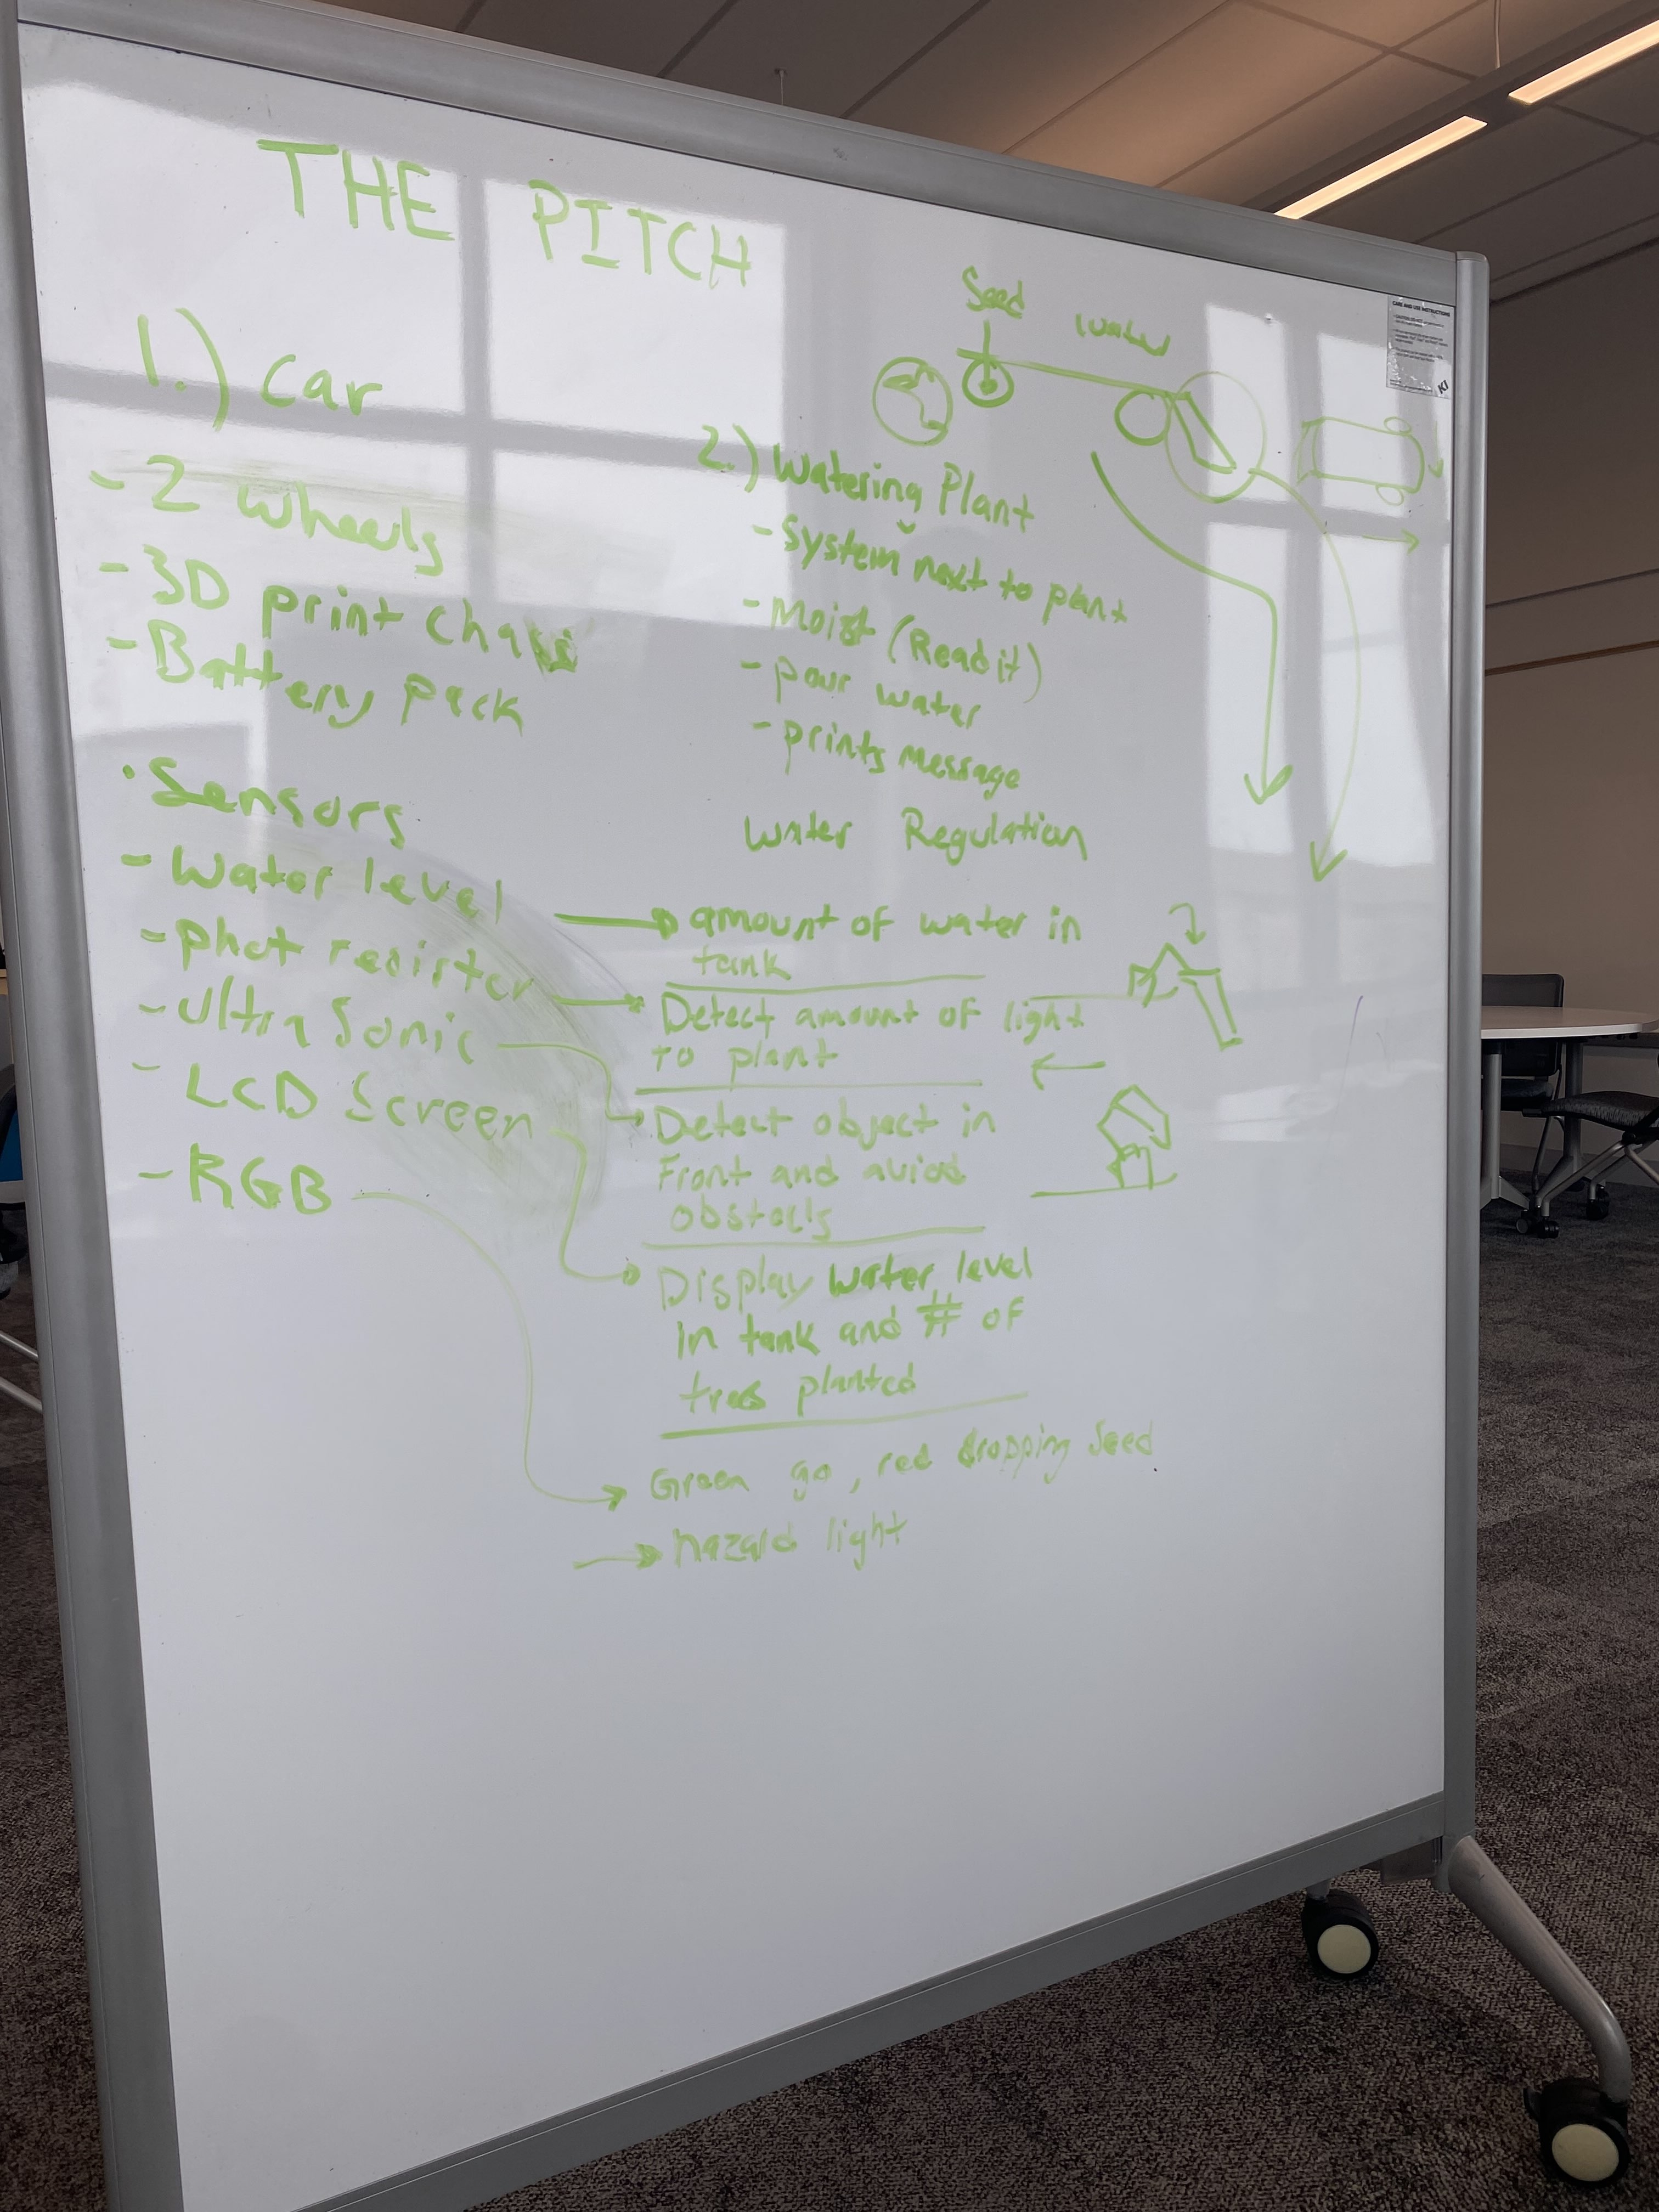 THE PITCH
1.) Car
- 2 wheels
- 3D print chasis
- Battery pack
• Sensors
- Water level
- Phot resistor
- Ultra Sonic
- LCD Screen
- RGB
Seed water
2.) Watering Plant
- System next to plant
- Moist (Read it)
- pour water
- prints message
Water Regulation
amount of water in
tank
Detect amount of light
to plant
Detect object in
Front and aviod
obstacls
Display water level
in tank and # of
trees planted
Green go, red dropping seed
hazald light
CARE AND USE INSTRUCTIONS
KI